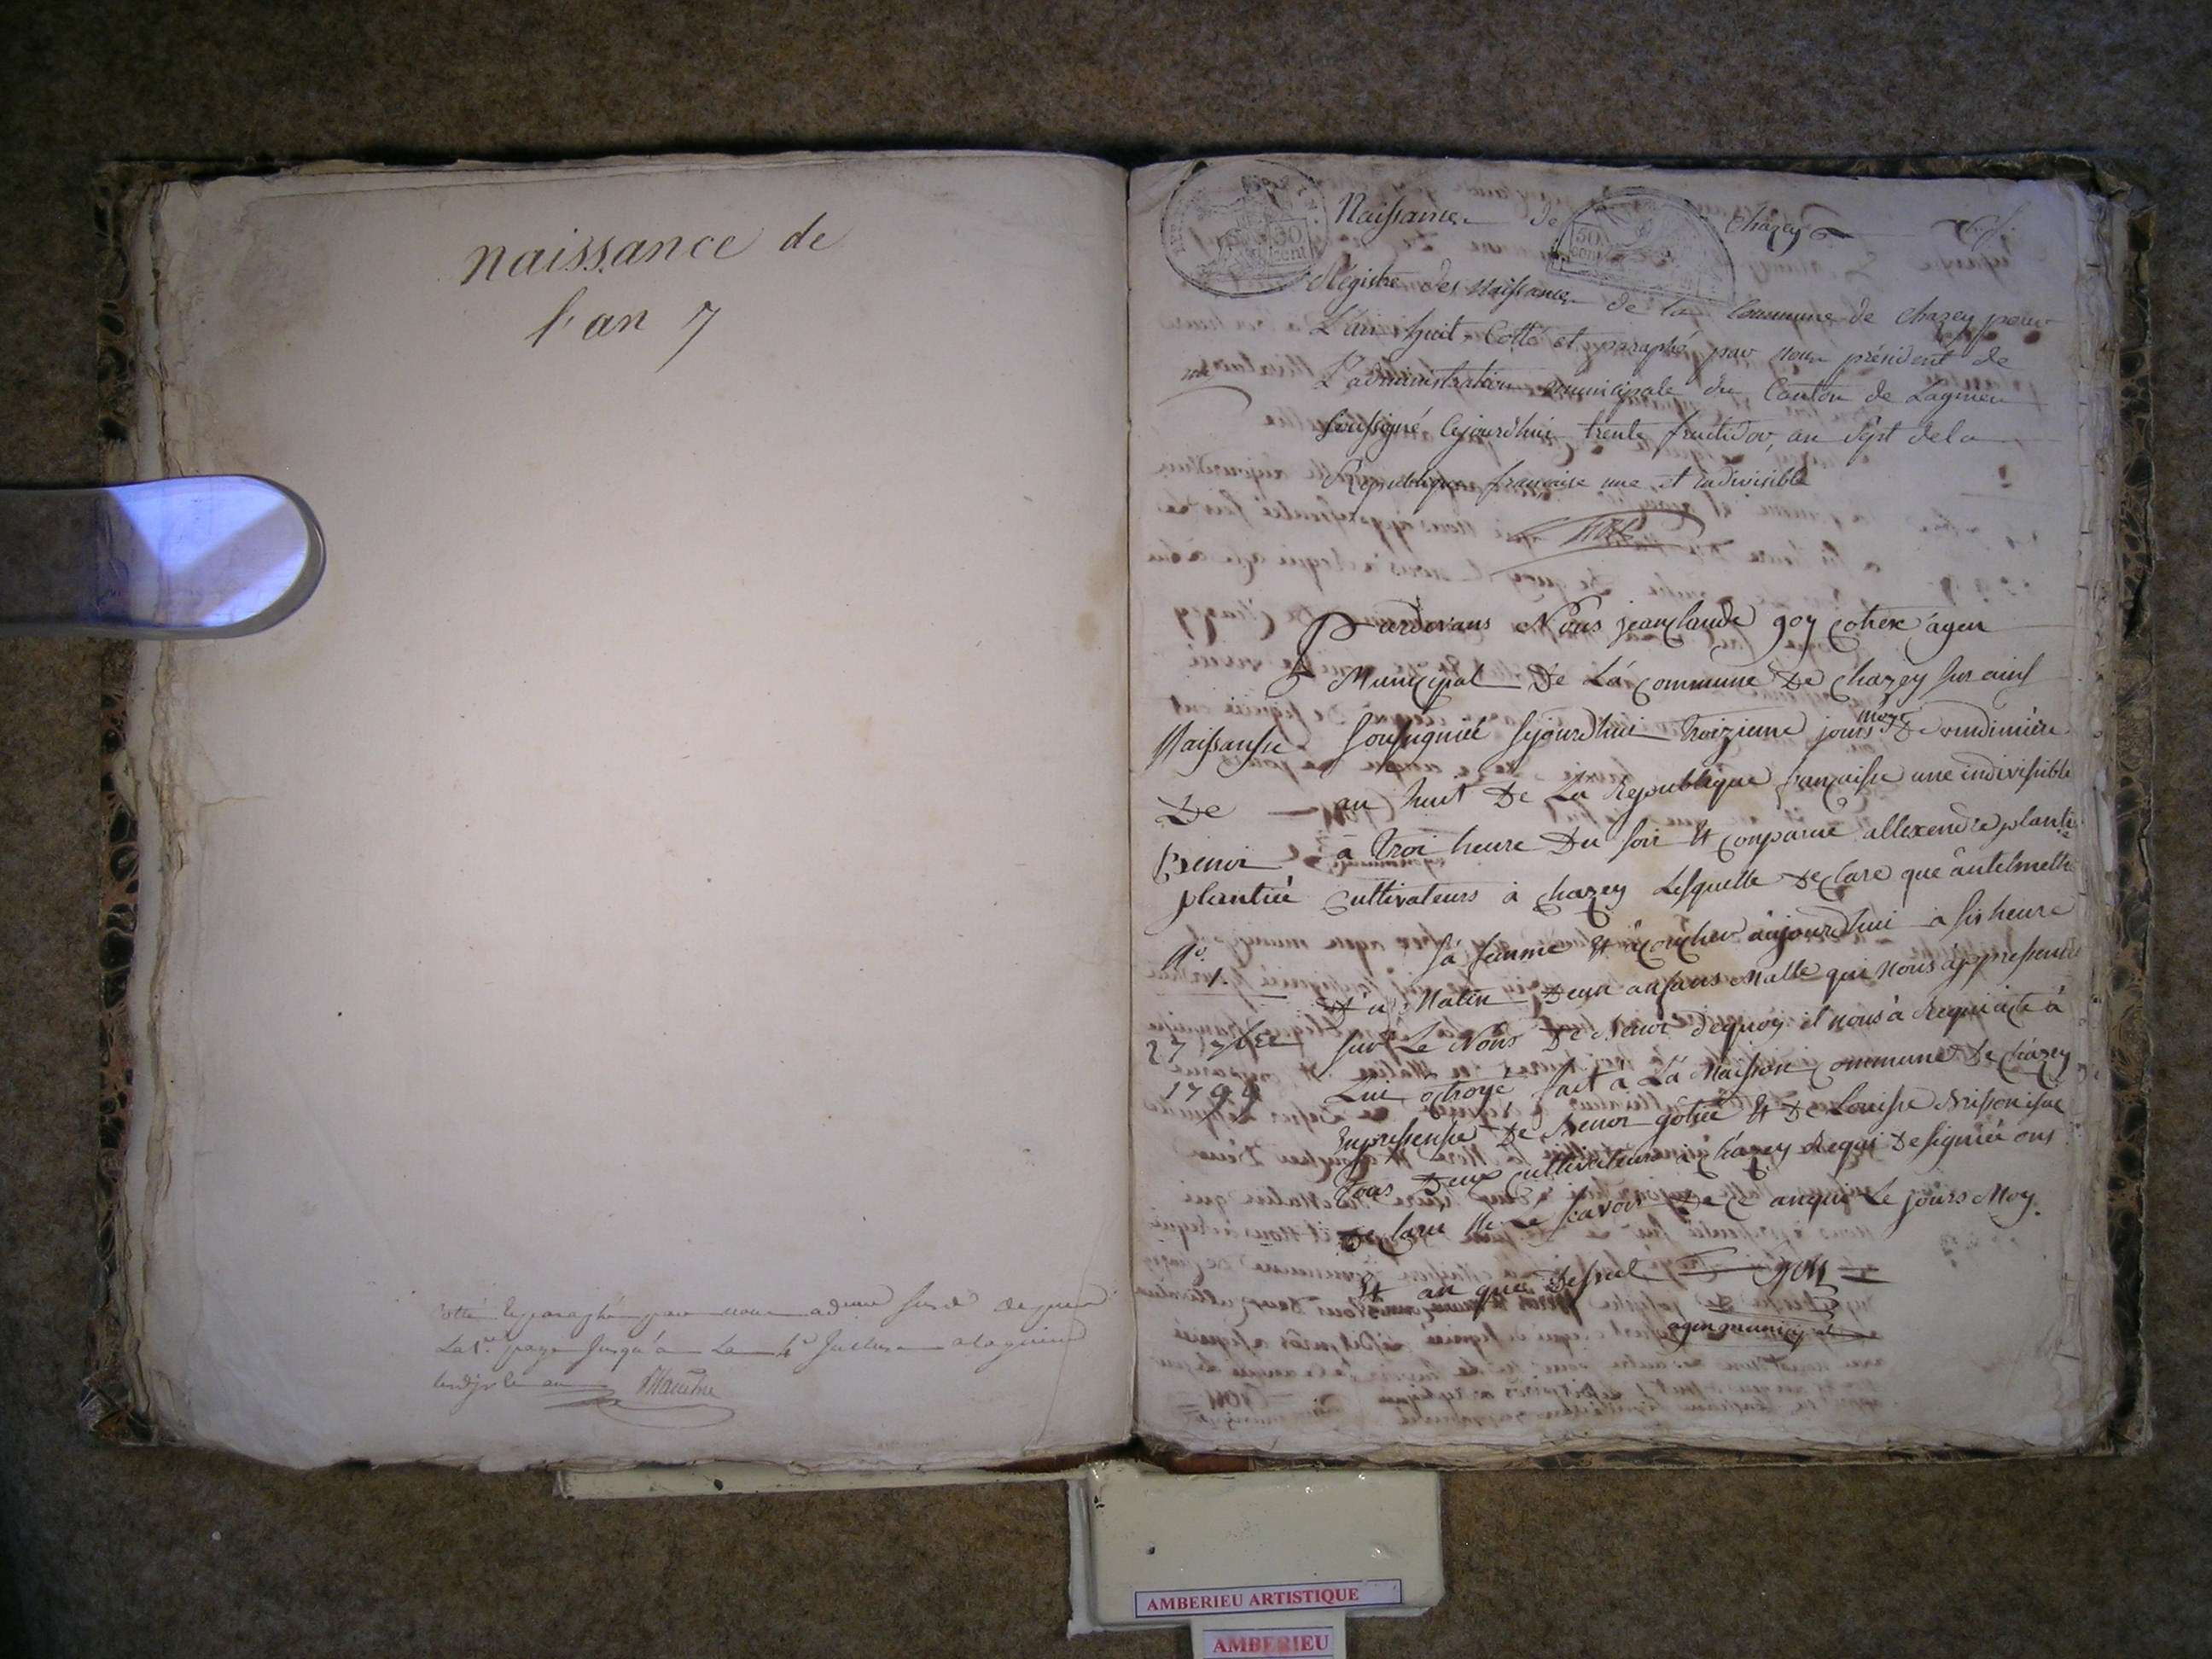 naissance de
l'an 7
Naissances de Chazey
Registre des Naissances de la Commune de Chazey pour
L'an huit Cotté et paraphé par nous président de
L'administration municipale du Canton de Lagnieu
Soussigné Cejourd'hui trente fructidor, an sept de la
République française une et indivisible
Pardevans Nous jean claude goy agen
Municipal De La commune De Chazey sur ains
sousignié sejourdhuit troizieme jours moys De vendimière
an huit De La Republique françaisse une indivisible
à troi heure Du soir Et conparue allexendre plantié
cultivateurs à Chazey Lesquelle Declare que
sa femme Et acoucher aujourdhui à sis heure
Du Matin Deun anfans Malle qui nous àppressente
sur Le Nons De Benoi dequoy il nous à Requi àcte à
Lui octroyé fait à La Maison commune De Chazey
enpressense De Benoi De Louisse
tous Deux cultivateurs à Chazey Requi De signiée ons
De claré Ne Le savoir De ce anquis Le jours Moy
Et an que Desseul GOY
agen municipal
Naissansse
De
Benoi
plantiée
No.
1.
27 7bre
1799
50
cent
La 1re page jusqu'à La
AMBERIEU ARTISTIQUE
AMBERIEU